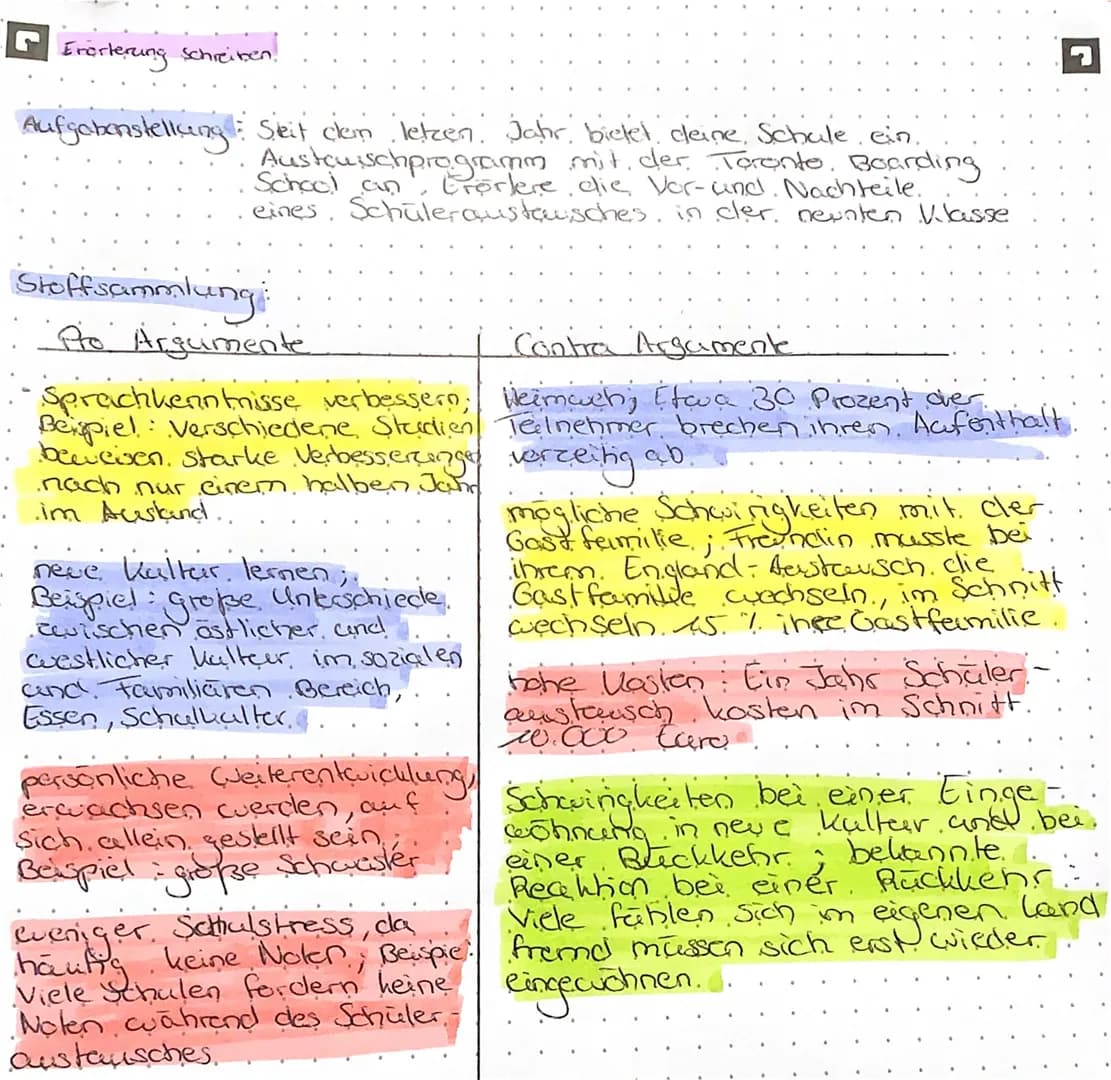 Erörterung schreiben
Aufgabenstellung: Seit dem letzen Jahr bietet deine Schule ein
Austauschprogramm mit der Toronto Boarding
School an. Erörtere die Vor- und Nachteile
eines Schüleraustausches in der neunten Klasse
Stoffsammlung:
Pro Argumente
- Sprachkenntnisse verbessern;
Beispiel: Verschiedene Studien
beweisen starke Verbesserungen
nach nur einem halben Jahr
im Ausland.
neue Kultur lernen;
Beispiel: große Unterschiede
zwischen östlicher und
westlicher Kultur im sozialen
und Familiären Bereich,
Essen, Schulkultur.
persönliche Weiterentwicklung,
erwachsen werden, auf
sich allein gestellt sein;
Beispiel: große Schwester
weniger Schulstress, da
häufig keine Noten; Beispiel:
Viele Schulen fordern keine
Noten während des Schüler-
austausches
Contra Argumente
Heimweh; Etwa 30 Prozent der
Teilnehmer brechen ihren Aufenthalt
vorzeitig ab.
mögliche Schwirigkeiten mit der
Gastfamilie; Freundin musste bei
ihrem England-Austausch die
Gastfamilie wechseln, im Schnitt
wechseln 15 % ihre Gastfamilie.
hohe Kosten: Ein Jahr Schüler-
austausch kosten im Schnitt
10.000 Euro.
Schwirigkeiten bei einer Einge-
wöhnung in neue Kultur und bei
einer Rückkehr; bekannte
Reaktion bei einer Rückkehr:
Viele fühlen sich im eigenen Land
fremd müssen sich erst wieder
eingewöhnen.